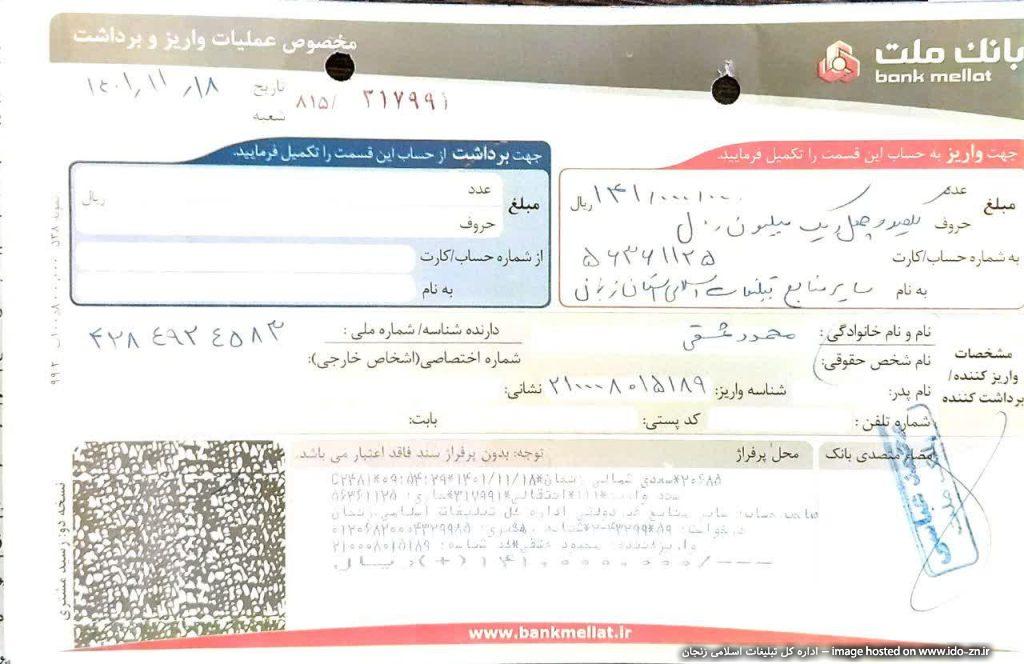 مخصوص عملیات واریز و برداشت
بانک ملت
bank mellat
تاریخ ۱۴۰۱٫۱۱٫۱۸
شعبه
۸۱۵/ ۳۱۷۹۹۱
جهت واریز به حساب این قسمت را تکمیل فرمایید.
مبلغ
عدد ۱۴۱/۰۰۰/۰۰۰ ریال
حروف یکصد و چهل و یک میلیون ریال
به شماره حساب/کارت ۵۶۳۶۱۱۲۵
به نام سایر منابع تبلیغات اسلامی استان زنجان
جهت برداشت از حساب این قسمت را تکمیل فرمایید.
مبلغ
عدد ریال
حروف
از شماره حساب/کارت
به نام
مشخصات
واریز کننده/
برداشت کننده
نام و نام خانوادگی: محمود عشقی
نام شخص حقوقی:
دارنده شناسه/ شماره ملی: ۴۲۸۴۹۲۴۵۸۳
شماره اختصاصی(اشخاص خارجی):
نام پدر: شناسه واریز: ۲۱۰۰۰۸۰۱۵۱۸۹ نشانی:
شماره تلفن: کد پستی: بابت:
متصدی بانک
محل پرفراژ
توجه: بدون پرفراژ سند فاقد اعتبار می باشد.
۵۶۳۶۱۱۲۵
۲۱۰۰۰۸۰۱۵۱۸۹
نسخه دوم: رسید مشتری
www.bankmellat.ir
اداره کل تبلیغات اسلامی زنجان – image hosted on www.ido-zn.ir